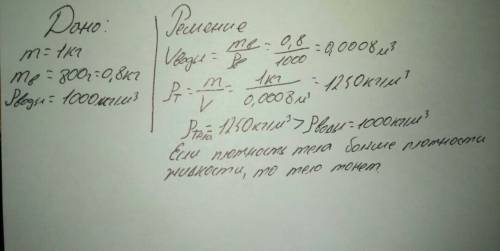 Дано:
m = 1кг
mв = 800г = 0,8кг
ρводы = 1000кг/м³
Решение
Vводы = mв/ρв = 0,8/1000 = 0,0008м³
ρт = m/V = 1кг/0,0008м³ = 1250кг/м³
ρтела = 1250кг/м³ > ρводы = 1000кг/м³
Если плотность тела больше плотности
жидкости, то тело тонет